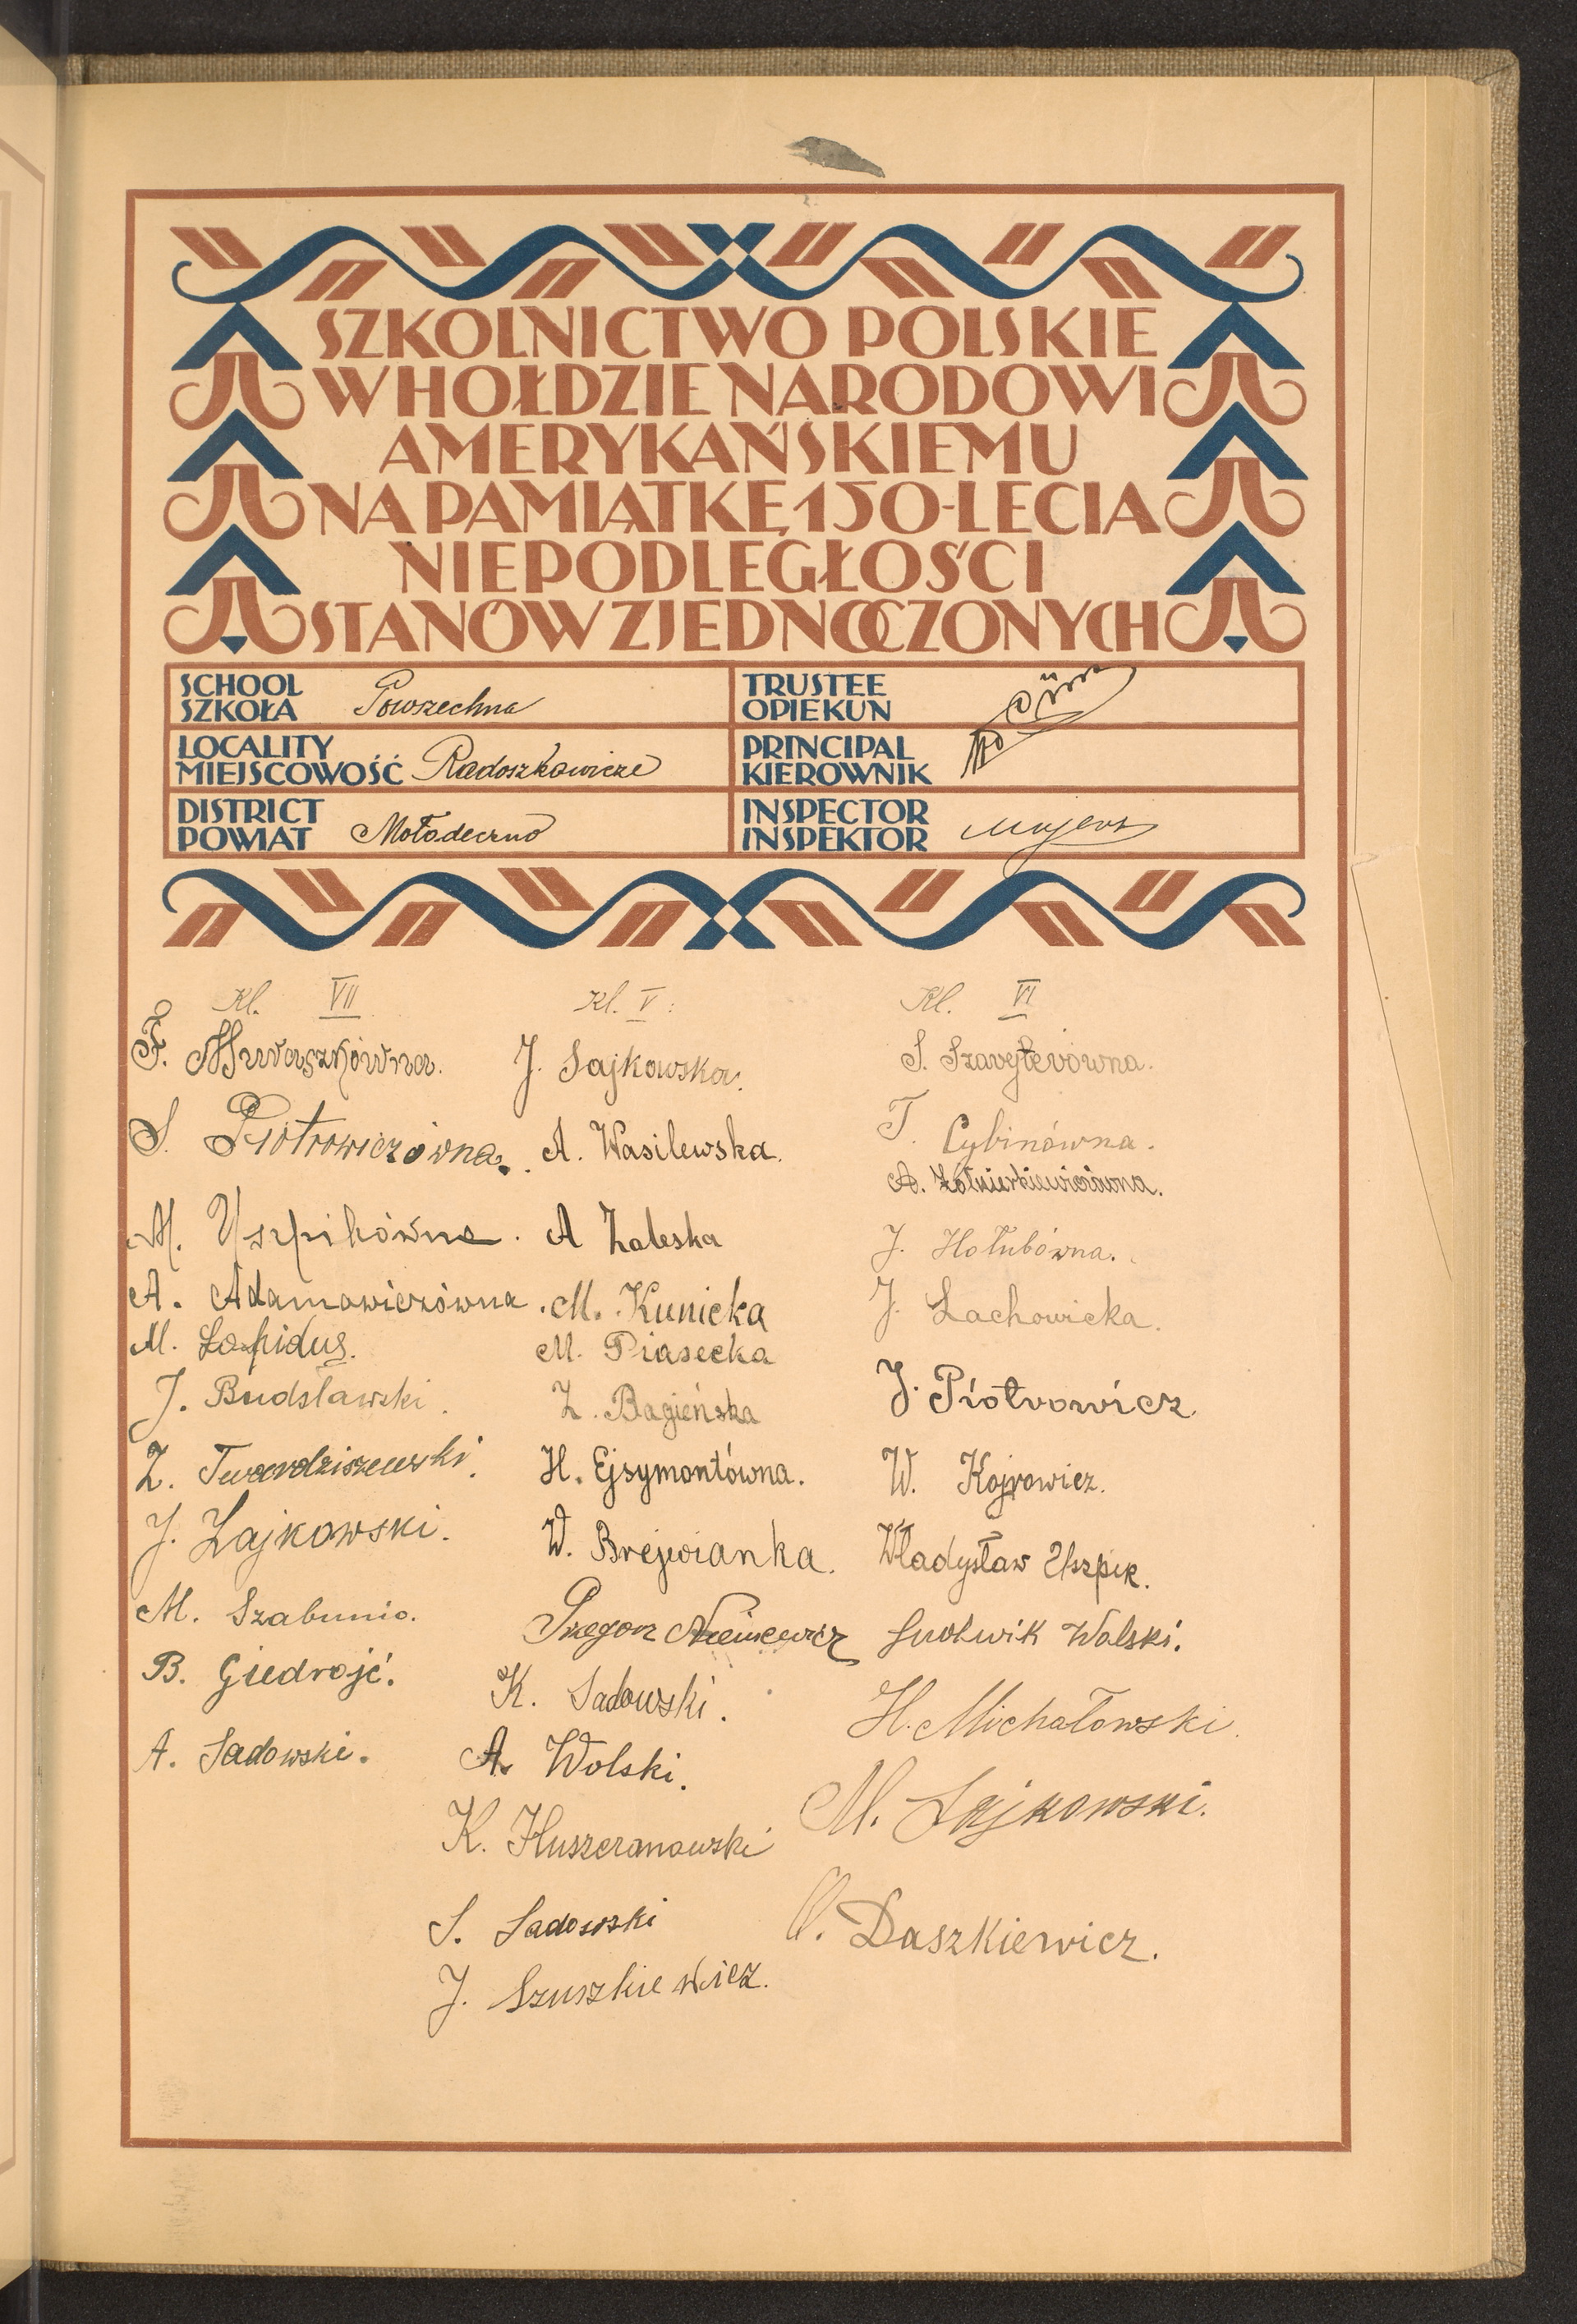 SZKOLNICTWO POLSKIE
W HOŁDZIE NARODOWI
AMERYKAŃSKIEMU
NA PAMIĄTKĘ 150-LECIA
NIEPODLEGŁOŚCI
STANÓW ZJEDNOCZONYCH
SCHOOL
SZKOŁA
Powszechna
TRUSTEE
OPIEKUN
LOCALITY
MIEJSCOWOŚĆ
Radoszkowicze
PRINCIPAL
KIEROWNIK
DISTRICT
POWIAT
Mołodeczno
INSPECTOR
INSPEKTOR
Kl. VII
F.
S. Piotrowiczówna.
M. Uszpikówna.
A. Adamowiczówna.
M. Łapidus.
J. Budsławski.
Z. Twardziszewski.
J. Zajkowski.
M. Szabunio.
B. Giedrojć.
A. Sadowski.
Kl. V.
J. Sajkowska.
A. Wasilewska.
A Zaleska
M. Kunicka
M. Piasecka
Z. Bagieńska
H. Ejsymontówna.
W. Brejwianka.
Niemcewicz
K. Sadowski.
A. Wolski.
K. Huszczanowski
S. Sadowski
J. Szuszkiewicz.
Kl. VI
S.
T. Cybinówna.
A. Żołnierkiewiczówna.
J. Hołubówna.
J. Lachowicka.
J. Piotrowicz
W. Kojrowicz.
Władysław Uszpik.
Ludwik Walski.
H. Michałowski.
M. Sajkowski.
Daszkiewicz.